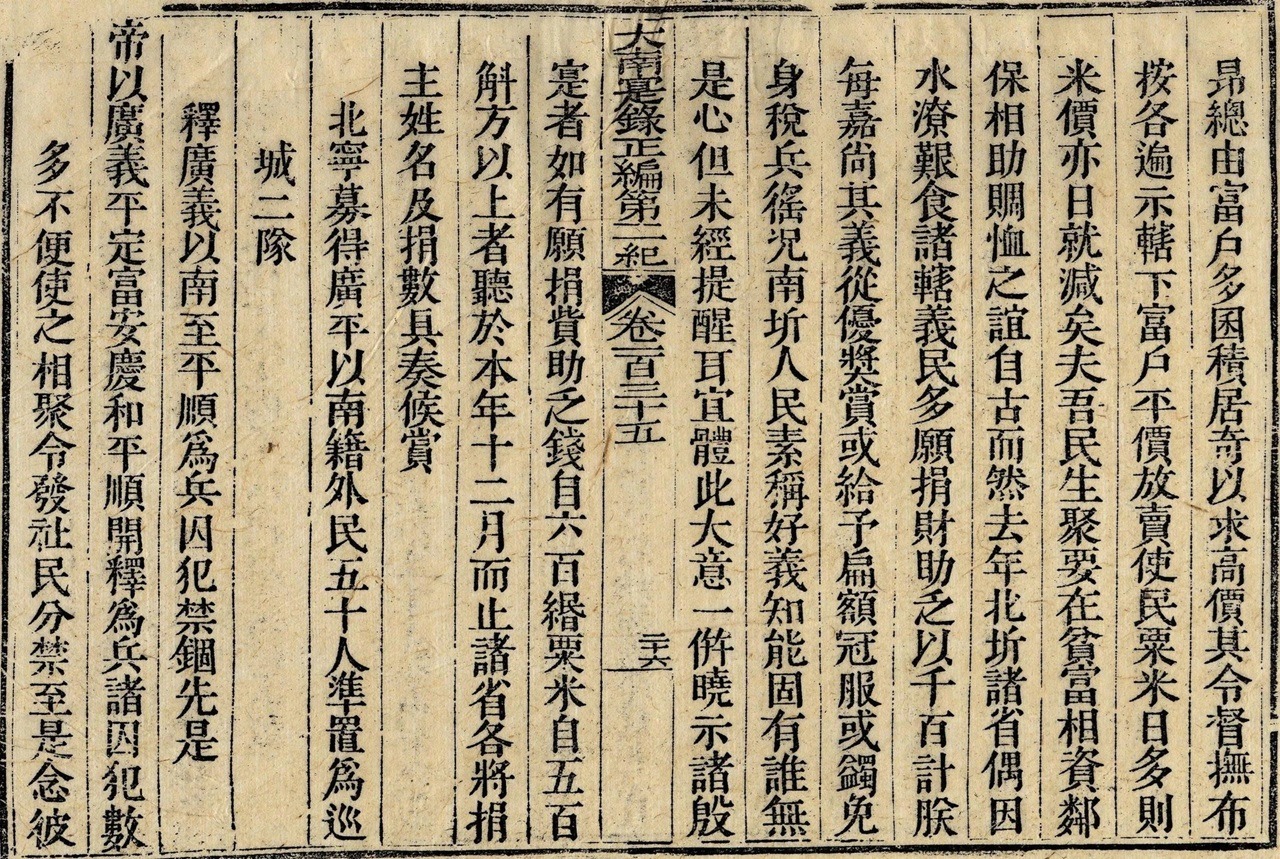 昂總由富戶多囷積居奇以求高價其令督撫布
按各遍示轄下富戶平價放賣使民粟米日多則
米價亦日就減矣夫吾民生聚要在貧富相資鄰
保相助賙恤之誼自古而然去年北圻諸省偶因
水潦艱食諸轄義民多願捐財助乏以千百計朕
每嘉尚其義從優獎賞或給予扁額冠服或蠲免
身稅兵徭況南圻人民素稱好義知能固有誰無
是心但未經提醒耳宜體此大意一併曉示諸殷
大南寔錄正編第二紀 卷一百三十五 二十六
寔者如有願捐貲助乏錢自六百緡粟米自五百
斛方以上者聽於本年十二月而止諸省各將捐
主姓名及捐數具奏候賞
北寧募得廣平以南籍外民五十人準置為巡
城二隊
釋廣義以南至平順爲兵囚犯禁錮先是
帝以廣義平定富安慶和平順開釋爲兵諸囚犯數
多不便使之相聚令發社民分禁至是念彼